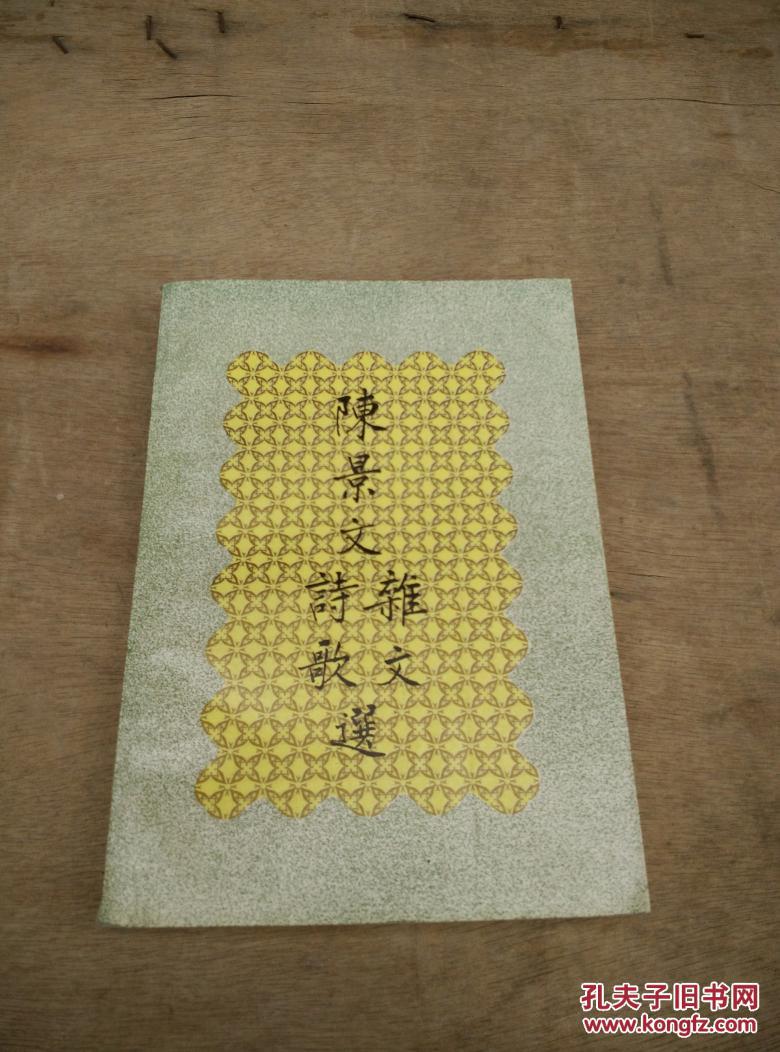 陳景文
雜文
詩歌
選
孔夫子旧书网
www.kongfz.com